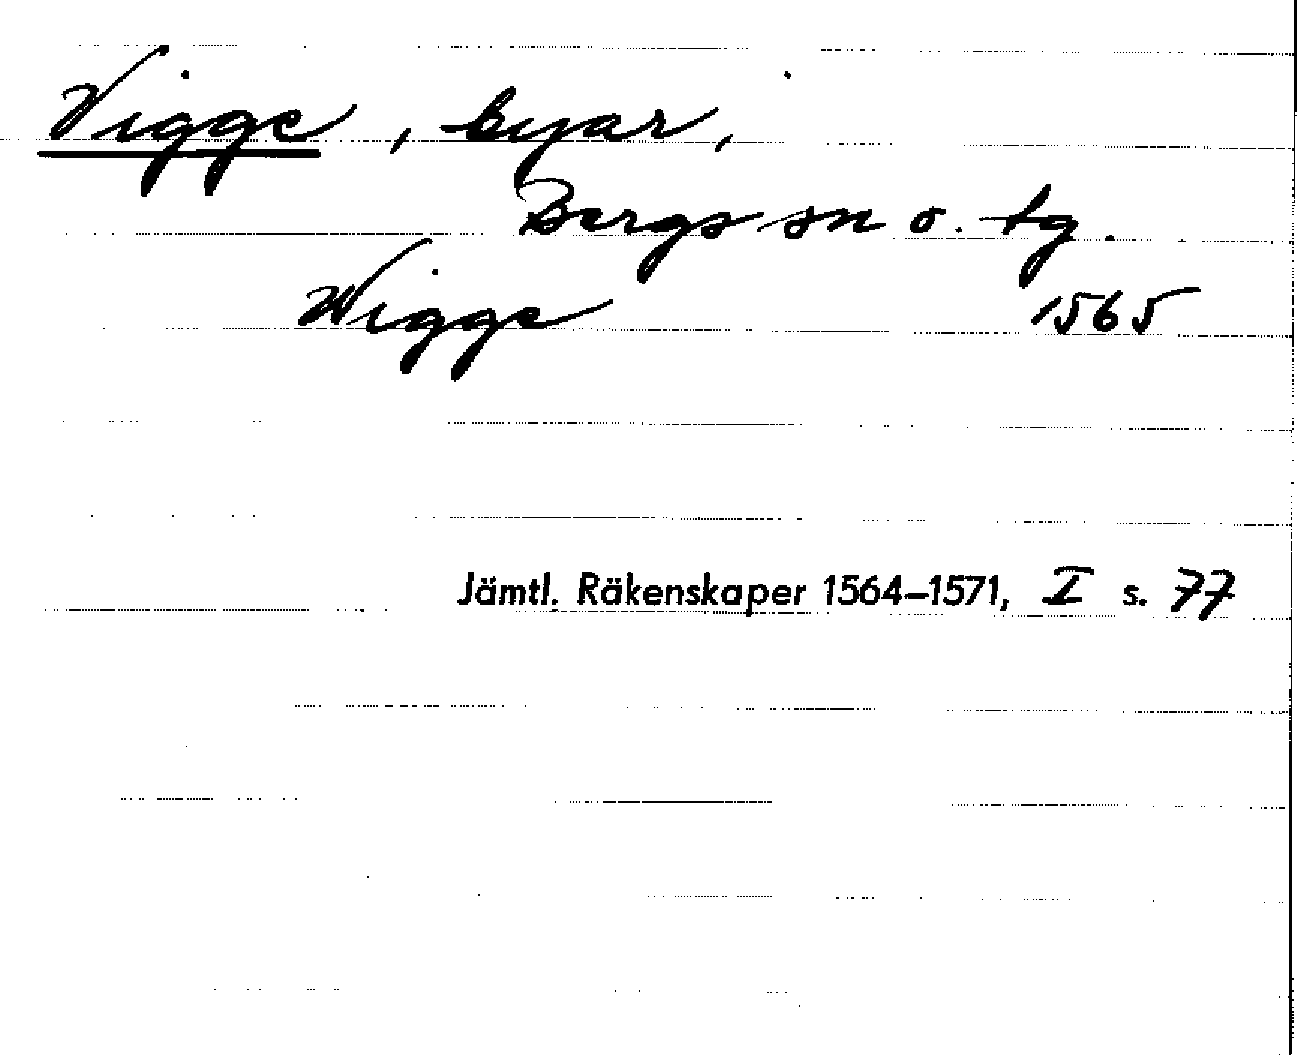 Vigge, byar,
Bergs sn o. tg.
Wigge 1565
Jämtl. Räkenskaper 1564–1571, I s. 77